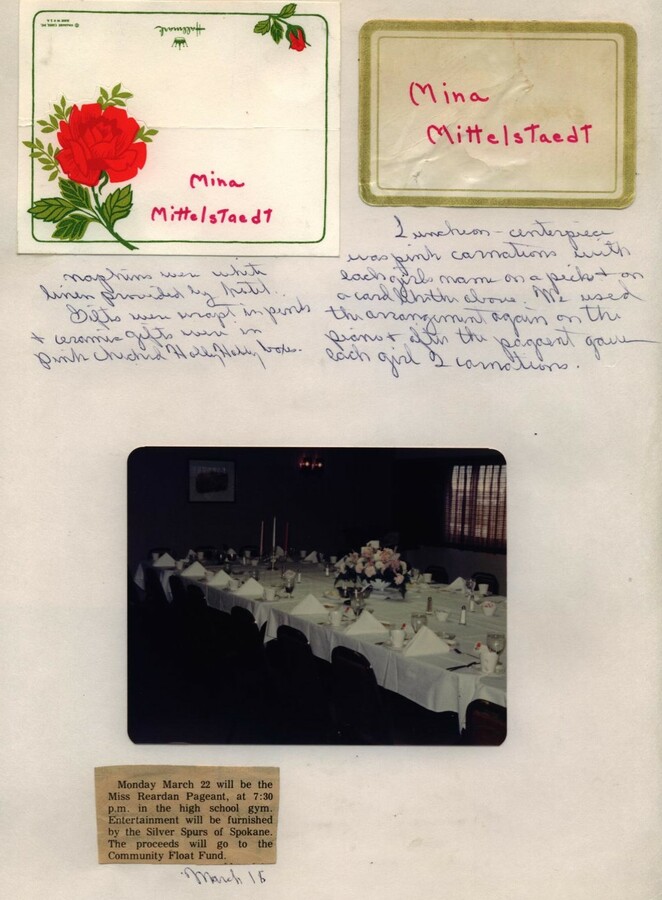 © HALLMARK CARDS, INC.
MADE IN U.S.A.
Hallmark
Mina
Mittelstaedt
Mina
Mittelstaedt
napkins were white
linen provided by hotel.
Gifts were wrapt in pinks
+ ceramic gifts were in
pink orchid Holly Holly boxes.
Luncheon - centerpiece
was pink carnations with
each girls name on a pick + on
a card like the above. We used
the arrangement again on the
piano + after the pageant gave
each girl 2 carnations.
Monday March 22 will be the
Miss Reardan Pageant, at 7:30
p.m. in the high school gym.
Entertainment will be furnished
by the Silver Spurs of Spokane.
The proceeds will go to the
Community Float Fund.
March 18